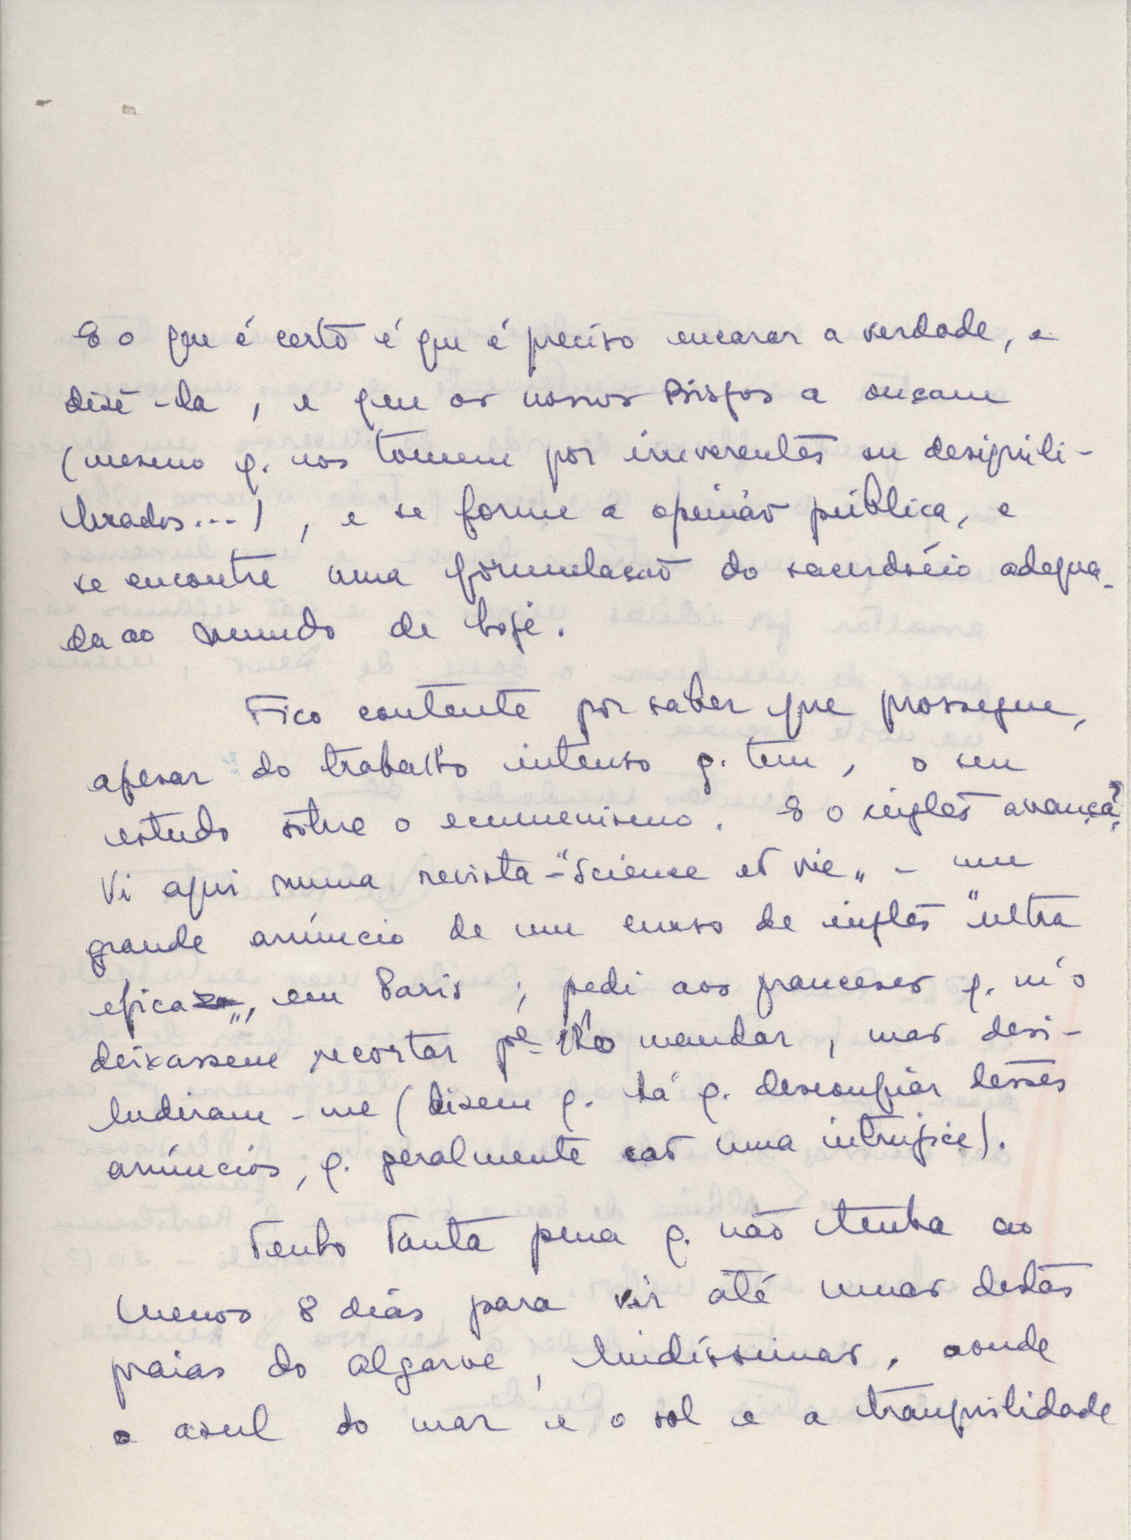 E o que é certo é que é preciso encarar a verdade, e
dizê-la, e que os nossos Bispos a ouçam
(mesmo q. nos tomem por irreverentes ou desiquili-
brados...), e se forme a opinião pública, e
se encontre uma formulação do sacerdócio adequa-
da ao mundo de hoje.
Fico contente por saber que prossegue,
apesar do trabalho intenso q. tem, o seu
estudo sobre o ecumenismo. E o inglês avança?
Vi aqui numa revista - "Science et vie" - um
grande anúncio de um curso de inglês "ultra
eficaz", em Paris; pedi aos franceses q. m'o
deixassem recortar pª lho mandar, mas desi-
ludiram-me (dizem q. há q. desconfiar desses
anúncios, q. geralmente são uma intrujice).
Tenho tanta pena q. não tenha ao
menos 8 dias para vir até umas destas
praias do Algarve, lindíssimas, aonde
o azul do mar e o sol e a tranquilidade